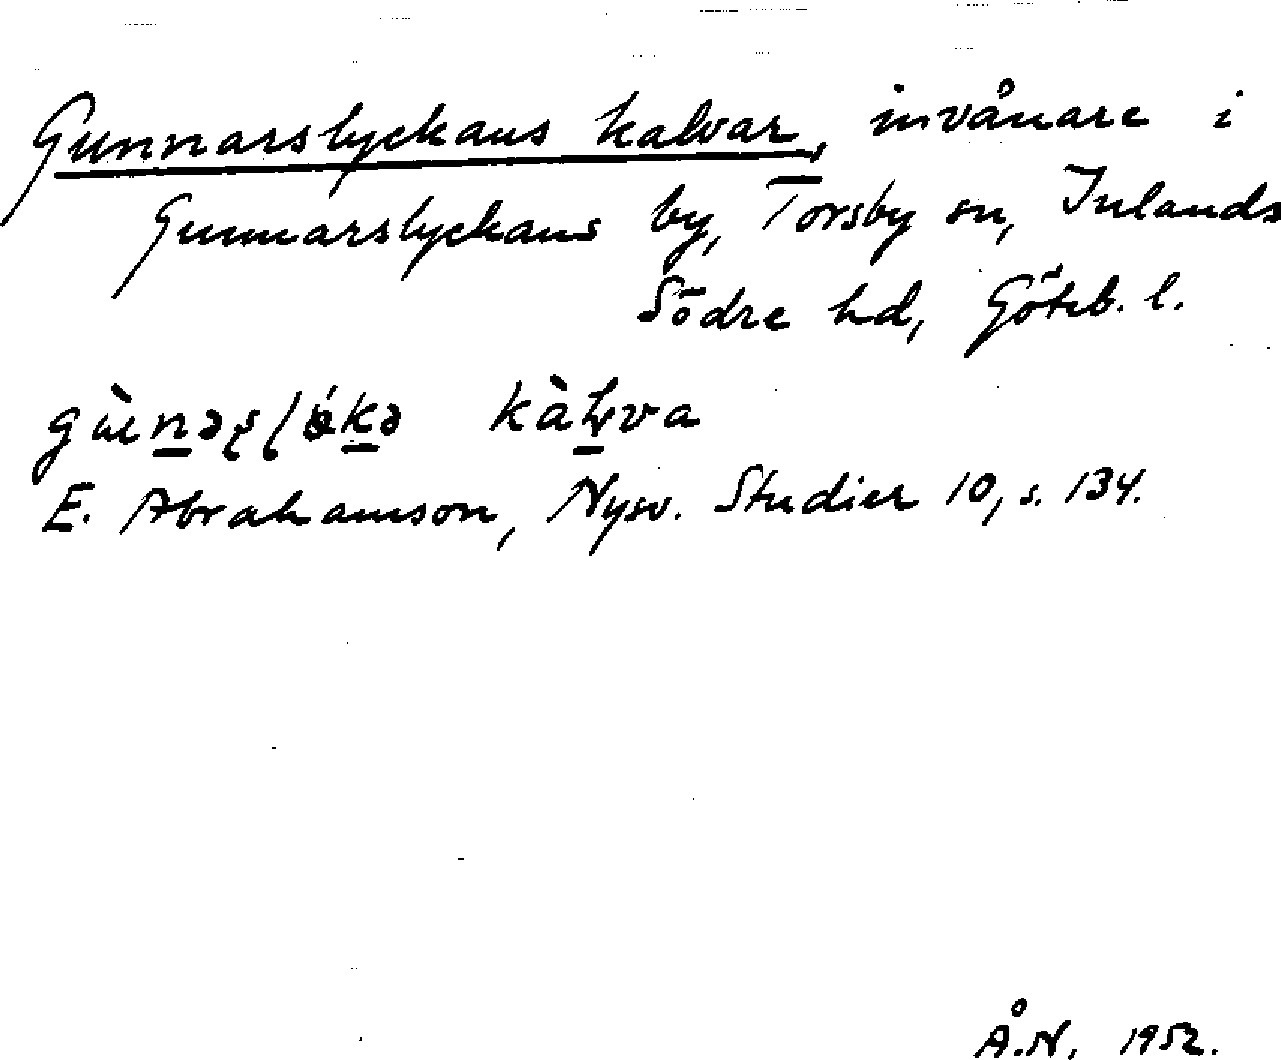 Gunnarslyckans kalvar, invånare i
Gunnarslyckans by, Torsby sn, Inlands
Södre hd, Göteb. l.
E. Abrahamson, Nysv. Studier 10, s. 134.
Å.N. 1952.